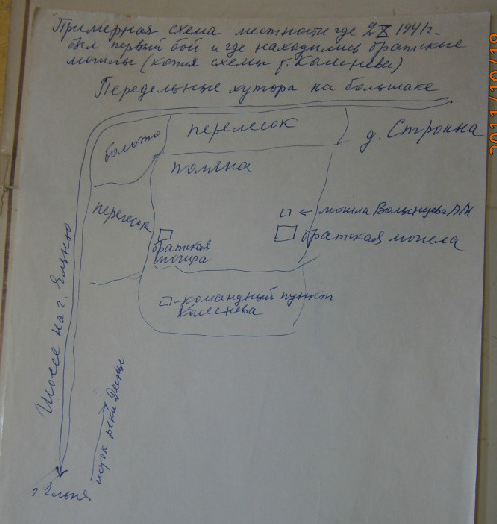 Примерная схема местности где 2 X 1941г.
был первый бой и где находились братские
могилы (копия схемы г. Каменева)
Передельные хутора на большаке
болото
перелесок
д. Стройна
поляна
перелесок
могила
братская могила
братская
могила
командный пункт
Шоссе на г. Ельню
г. Ельня
реки Десны
2011/10/19